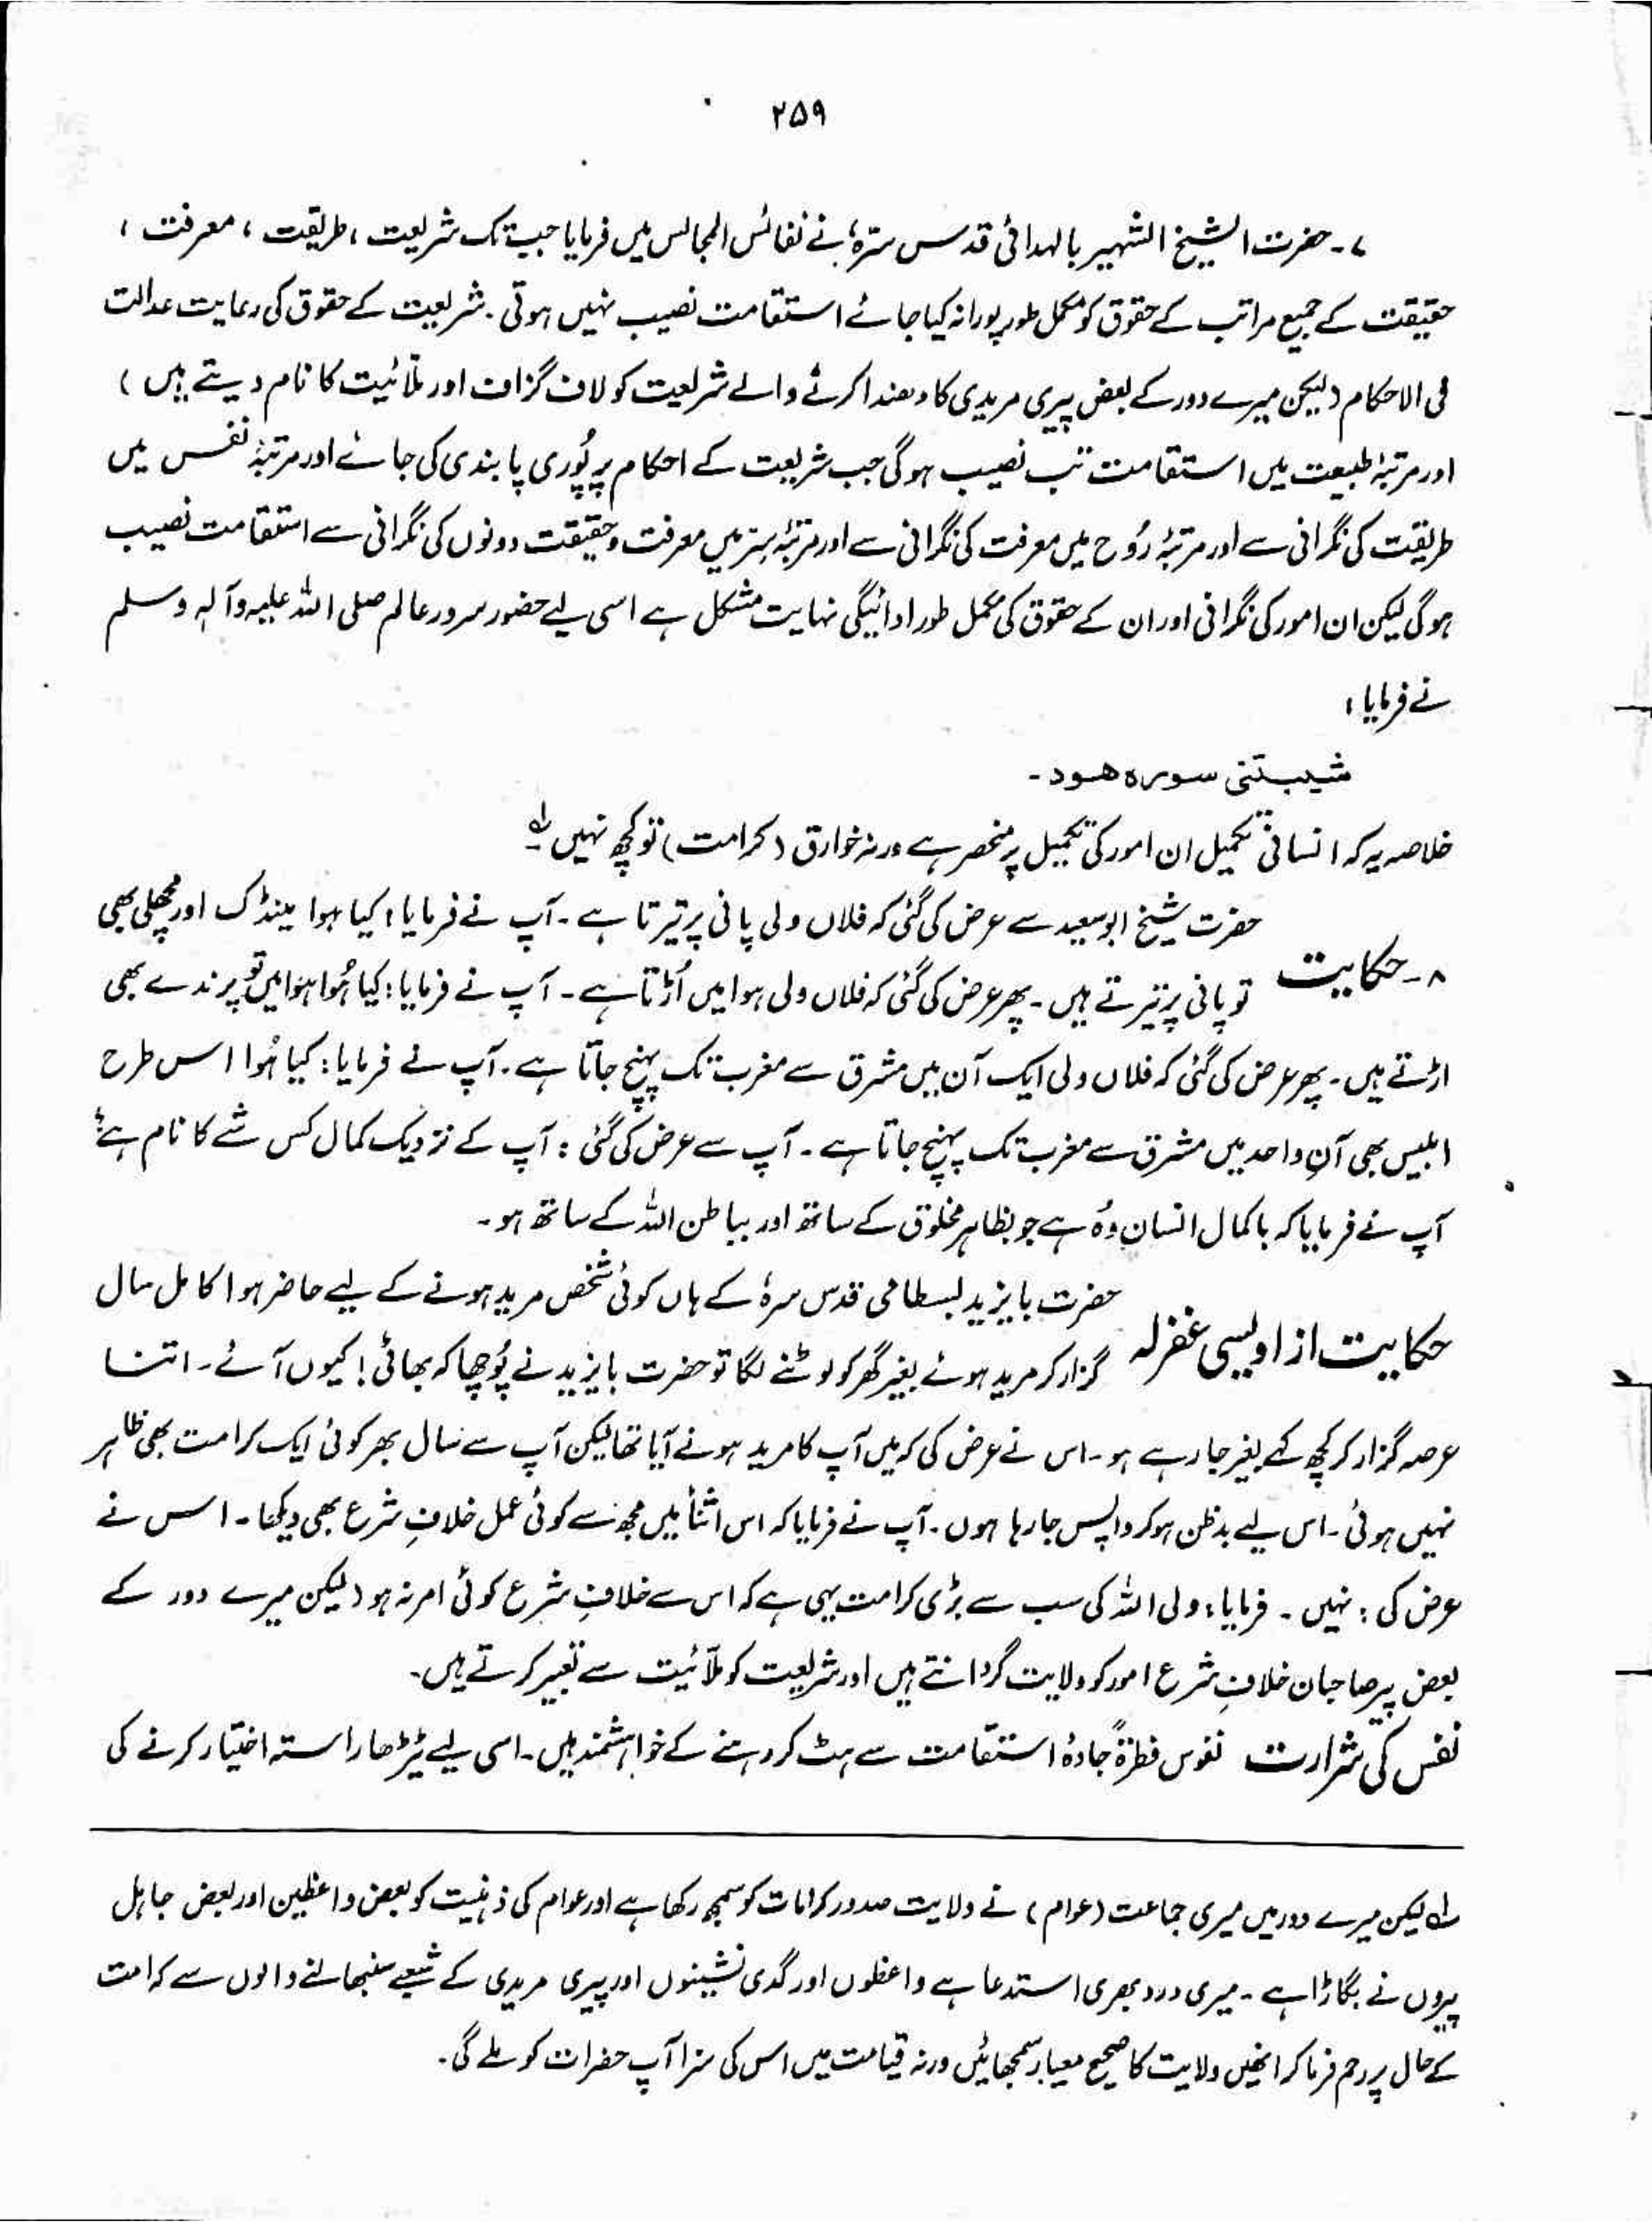 ۲۵۹
۷۔ حضرت الشیخ الشہیر بالہدائی قدس سترہٗ نے نفائس المجالس میں فرمایا جب تک شریعت ، طریقت ، معرفت ،
حقیقت کے جمیع مراتب کے حقوق کو مکمل طور پورا نہ کیا جائے استقامت نصیب نہیں ہوتی ۔ شریعت کے حقوق کی رعایت عدالت
فی الاحکام (لیکن میرے دور کے بعض پیری مریدی کا دھندا کرنے والے شریعت کو لاف گزاف اور ملّائیت کا نام دیتے ہیں )
اور مرتبۂ طبیعت میں استقامت تب نصیب ہوگی جب شریعت کے احکام پر پُوری پابندی کی جائے اور مرتبۂ نفس میں
طریقت کی نگرانی سے اور مرتبۂ رُوح میں معرفت کی نگرانی سے اور مرتبۂ سِتر میں معرفت و حقیقت دونوں کی نگرانی سے استقامت نصیب
ہوگی لیکن ان امور کی نگرانی اور ان کے حقوق کی مکمل طور ادائیگی نہایت مشکل ہے اسی لیے حضور سرور عالم صلی اللہ علیہ وآلہ وسلم
نے فرمایا :
شیبتنی سورہ ھود ۔
خلاصہ یہ کہ انسانی تکمیل ان امور کی تکمیل پر منحصر ہے ورنہ خوارق (کرامت) تو کچھ نہیں لہ
۸۔ حکایت حضرت شیخ ابوسعید سے عرض کی گئی کہ فلاں ولی پانی پر تیرتا ہے ۔ آپ نے فرمایا : کیا ہوا مینڈک اور مچھلی بھی
تو پانی پر تیرتے ہیں ۔ پھر عرض کی گئی کہ فلاں ولی ہوا میں اُڑتا ہے ۔ آپ نے فرمایا : کیا ہُوا ہوا میں تو پرندے بھی
اڑتے ہیں ۔ پھر عرض کی گئی کہ فلاں ولی ایک آن میں مشرق سے مغرب تک پہنچ جاتا ہے ۔ آپ نے فرمایا : کیا ہُوا اس طرح
ابلیس بھی آنِ واحد میں مشرق سے مغرب تک پہنچ جاتا ہے ۔ آپ سے عرض کی گئی : آپ کے نزدیک کمال کس شے کا نام ہے؟
آپ نے فرمایا کہ باکمال انسان وُہ ہے جو بظاہر مخلوق کے ساتھ اور بباطن اللہ کے ساتھ ہو ۔
حکایت از اویسی غفرلہ حضرت بایزید بسطامی قدس سرہٗ کے ہاں کوئی شخص مرید ہونے کے لیے حاضر ہوا کامل سال
گزار کر مرید ہوئے بغیر گھر کو لوٹنے لگا تو حضرت بایزید نے پُوچھا کہ بھائی ! کیوں آئے ۔ اتنا
عرصہ گزار کر کچھ کہے بغیر جا رہے ہو ۔ اس نے عرض کی کہ میں آپ کا مرید ہونے آیا تھا لیکن آپ سے سال بھر کوئی ایک کرامت بھی ظاہر
نہیں ہوئی ۔ اس لیے بدظن ہوکر واپس جا رہا ہوں ۔ آپ نے فرمایا کہ اس اثناء میں مجھ سے کوئی عمل خلافِ شرع بھی دیکھا ۔ اس نے
عرض کی : نہیں ۔ فرمایا : ولی اللہ کی سب سے بڑی کرامت یہی ہے کہ اس سے خلافِ شرع کوئی امر نہ ہو (لیکن میرے دور کے
بعض پیر صاحبان خلافِ شرع امور کو ولایت گردانتے ہیں اور شریعت کو ملّائیت سے تعبیر کرتے ہیں ۔
نفس کی شرارت نفوس فطرۃً جادۂ استقامت سے ہٹ کر رہنے کے خواہشمند ہیں ۔ اسی لیے ٹیڑھا راستہ اختیار کرنے کی
لہ لیکن میرے دور میں میری جماعت (عوام) نے ولایت صدور کرامات کو سمجھ رکھا ہے اور عوام کی ذہنیت کو بعض واعظین اور بعض جاہل
پیروں نے بگاڑا ہے ۔ میری درد بھری استدعا ہے واعظوں اور گدی نشینوں اور پیری مریدی کے شعبے سنبھالنے والوں سے کہ امت
کے حال پر رحم فرما کر انھیں ولایت کا صحیح معیار سمجھائیں ورنہ قیامت میں اس کی سزا آپ حضرات کو ملے گی ۔